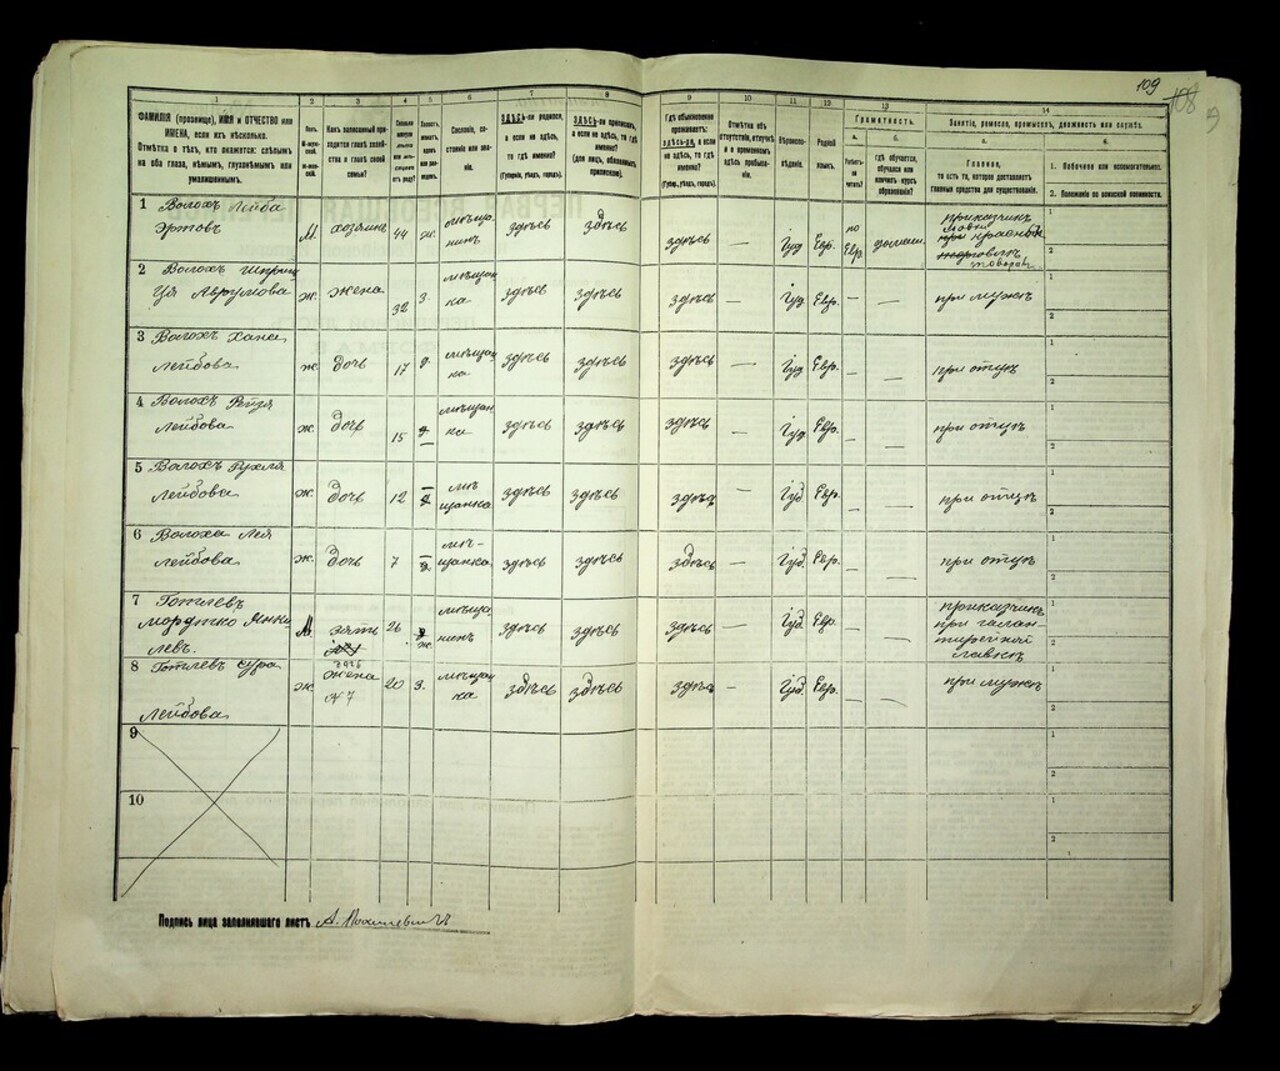 109
108
1
2
3
4
5
6
7
8
9
10
11
12
13
14
ФАМИЛІЯ (прозвище), ИМЯ и ОТЧЕСТВО или
ИМЕНА, если ихъ нѣсколько.
Отмѣтка о тѣхъ, кто окажется: слѣпымъ
на оба глаза, нѣмымъ, глухонѣмымъ или
умалишеннымъ.
Полъ.
Какъ записанный при-
ходится главѣ хозяй-
ства и главѣ своей
семьи?
Сословіе, со-
стояніе или зва-
ніе.
ЗДѢСЬ-ли родился,
а если не здѣсь,
то гдѣ именно?
(Губернія, уѣздъ, городъ).
ЗДѢСЬ-ли приписанъ,
а если не здѣсь, то гдѣ
именно?
(для лицъ, обязанныхъ
припискою).
Гдѣ обыкновенно
проживаетъ:
здѣсь-ли, а если
не здѣсь, то гдѣ
именно?
(Губерн., уѣздъ, городъ).
Отмѣтка объ
отсутствіи, отлучкѣ
и о временномъ
здѣсь пребыва-
ніи.
Вѣроиспо-
вѣданіе.
Родной
языкъ.
Грамотность.
а.
Умѣетъ-
ли
читать?
б.
гдѣ обучается,
обучался или
кончилъ курсъ
образованія?
Занятіе, ремесло, промыселъ, должность или служба.
а.
Главное,
то есть то, которое доставляетъ
главныя средства для существованія.
б.
1. Побочное или вспомогательное.
2. Положеніе по воинской повинности.
1 Волохъ Лейба
Эртовъ
М. хозяинъ 44 ж. мѣща-
нинъ здѣсь здѣсь здѣсь — Іуд Евр. по
Евр. домаш. приказчикъ
лавки
при красныхъ
торговыхъ
товаров
1
2
2 Волохъ Шприн-
ця Аврумова ж. жена 32 з. мѣщан-
ка здѣсь здѣсь здѣсь — Іуд Евр. — — при мужѣ
1
2
3 Волохъ Хана
Лейбова ж. дочь 17 д. мѣщан-
ка здѣсь здѣсь здѣсь — Іуд Евр. — — при отцѣ
1
2
4 Волохъ Рейзя
Лейбова ж. дочь 15 д. мѣщан-
ка здѣсь здѣсь здѣсь — Іуд Евр. — — при отцѣ
1
2
5 Волохъ Рухля
Лейбова ж. дочь 12 д. мѣ
щанка здѣсь здѣсь здѣсь — Іуд. Евр. — — при отцѣ
1
2
6 Волохъ Лея
Лейбова ж. дочь 7 д. мѣ-
щанка здѣсь здѣсь здѣсь — Іуд. Евр. — — при отцѣ
1
2
7 Готлевъ
Мордтко Янки-
левъ. М. зять 26 ж. мѣща-
нинъ здѣсь здѣсь здѣсь — Іуд. Евр. — — приказчикъ
при галан-
терейной
лавкѣ
1
2
8 Готлевъ Сура
Лейбова ж. жена
№ 7 20 з. мѣщан-
ка здѣсь здѣсь здѣсь — Іуд. Евр. — — при мужѣ
1
2
9
1
2
10
1
2
Подпись лица заполнявшаго листъ